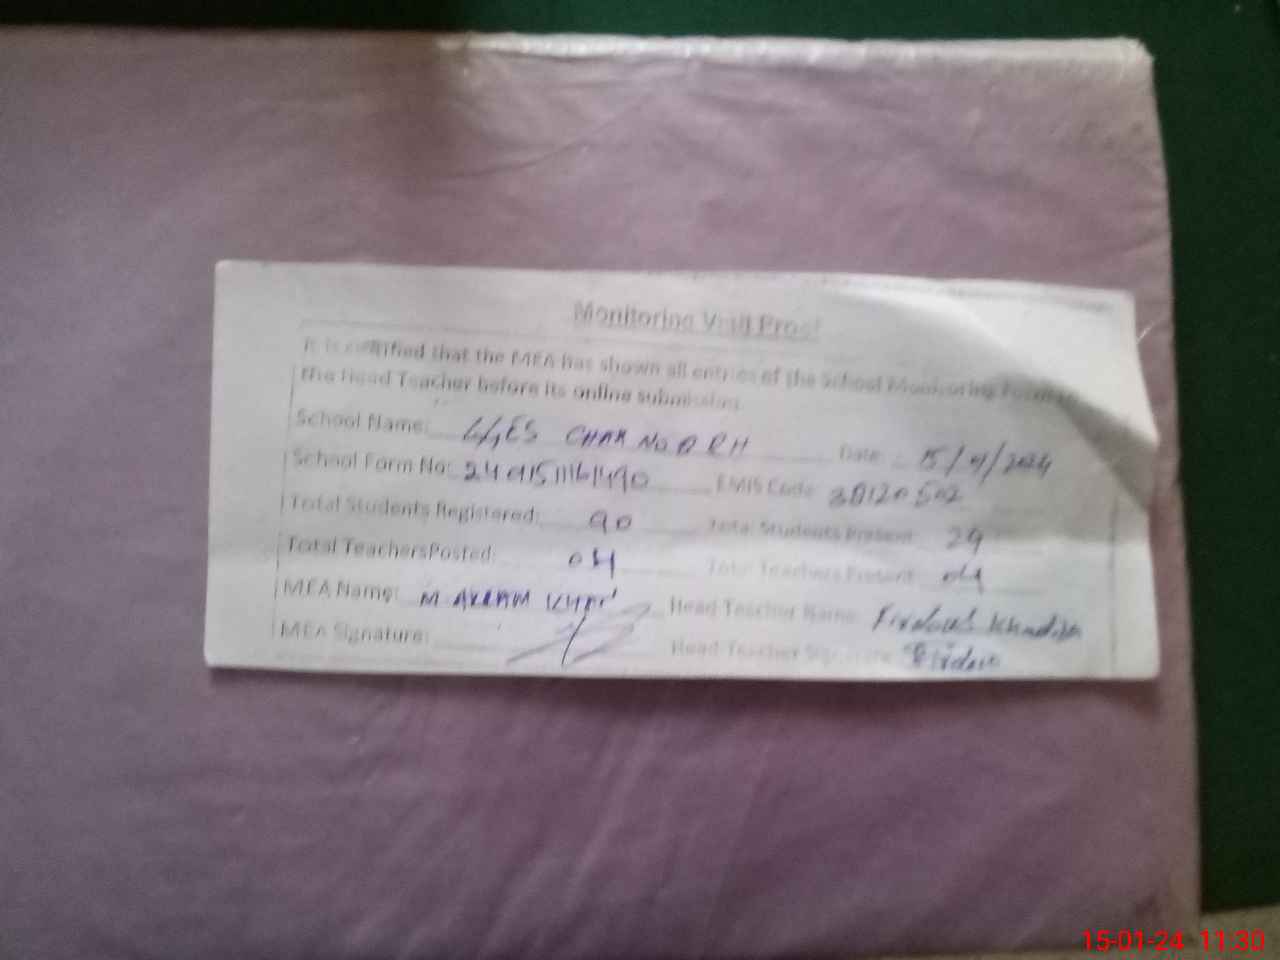 Monitoring Visit Proof
It is certified that the MEA has shown all entries of the School Monitoring Form to
the Head Teacher before its online submission.
School Name: GGES CHAK No 8 RH Date: 15/01/2024
School Form No: EMIS Code: 38120502
Total Students Registered: 90 Total Students Present: 29
Total TeachersPosted: 04 Total Teachers Present: 04
MEA Name: M AKRAM Head Teacher Name: Firdous Khadija
MEA Signature: Head Teacher Signature: Firdous
15-01-24 11:30